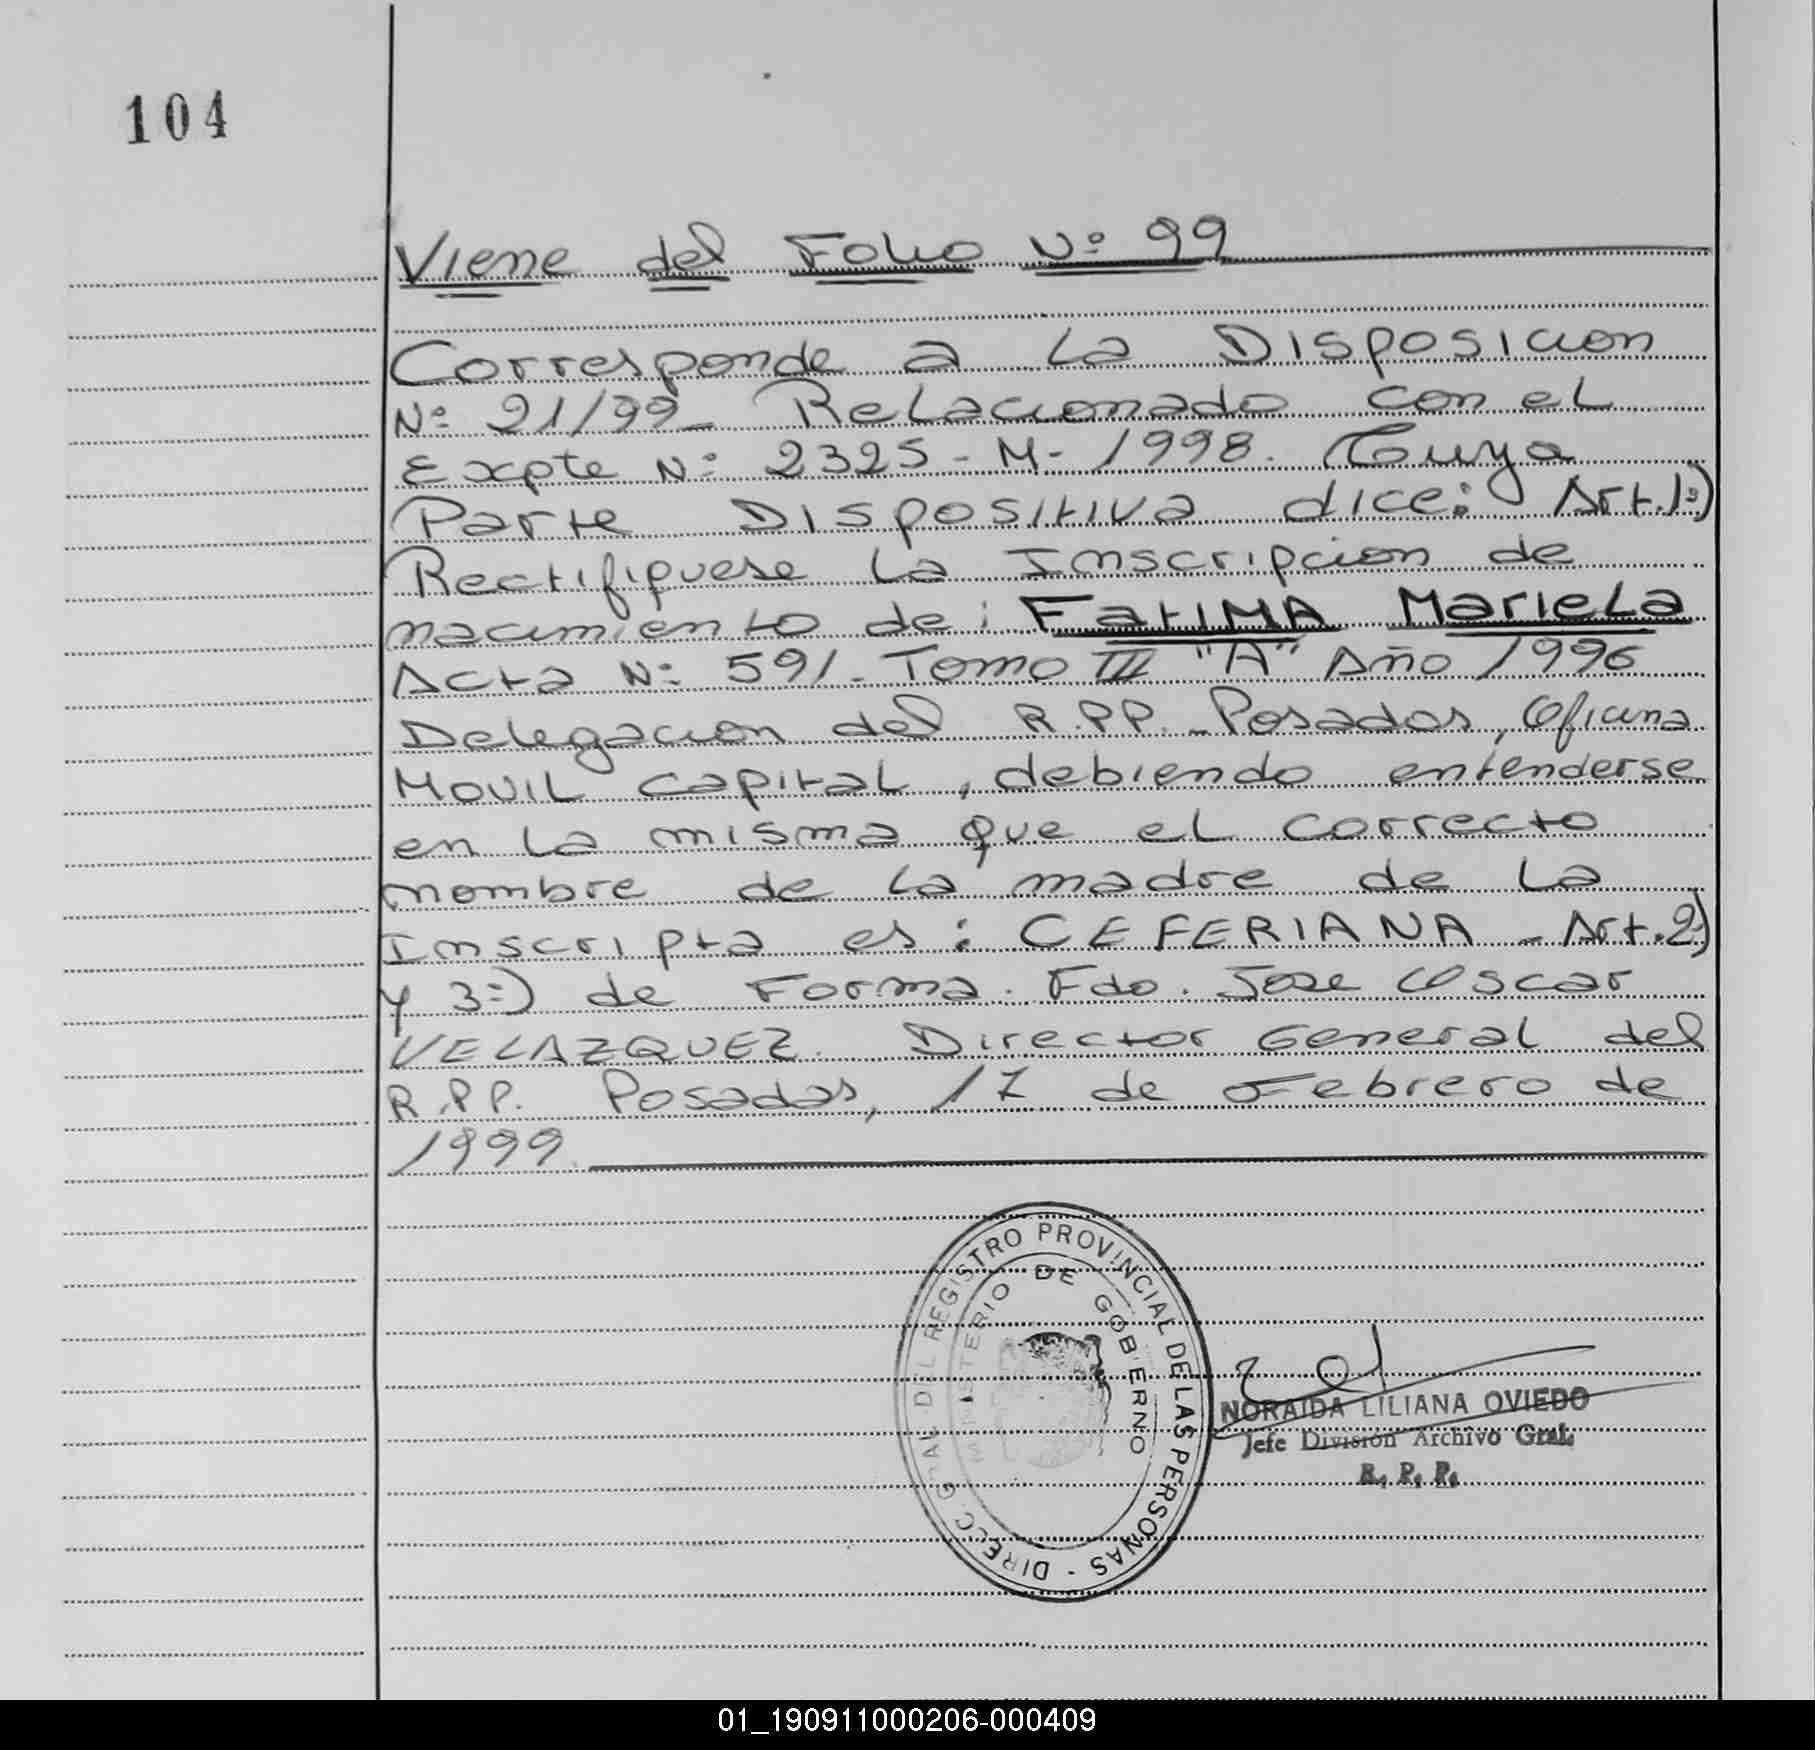 104
Viene del Folio Nº 99
Corresponde a La Disposicion
Nº 21/99_ Relacionado con el
Expte Nº 2325-M-1998. Cuya
Parte Dispositiva dice: Art.1º)
Rectifiquese La Inscripcion de
nacimiento de: FatIMA Mariela
Acta Nº 591_Tomo III "A" Año 1996
Delegacion del R.P.P._Posadas, Oficina
Movil Capital, debiendo entenderse
en la misma que el correcto
nombre de la madre de la
Inscripta es: CEFERIANA_Art.2º)
y 3º) de Forma. Fdo. Jose Oscar
VELAZQUEZ. Director General del
R.P.P. Posadas, 17 de Febrero de
1999.
DIRECC. GRAL DEL REGISTRO PROVINCIAL DE LAS PERSONAS -
MINISTERIO DE GOBIERNO
NORAIDA LILIANA OVIEDO
Jefe División Archivo Gral.
R. P. P.
01_190911000206-000409